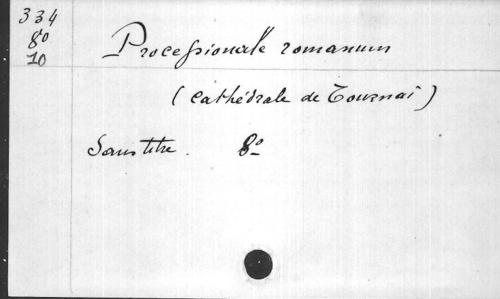 334
8o
10
Processionale romanum
(Cathédrale de Tournai)
Sans titre. 8o